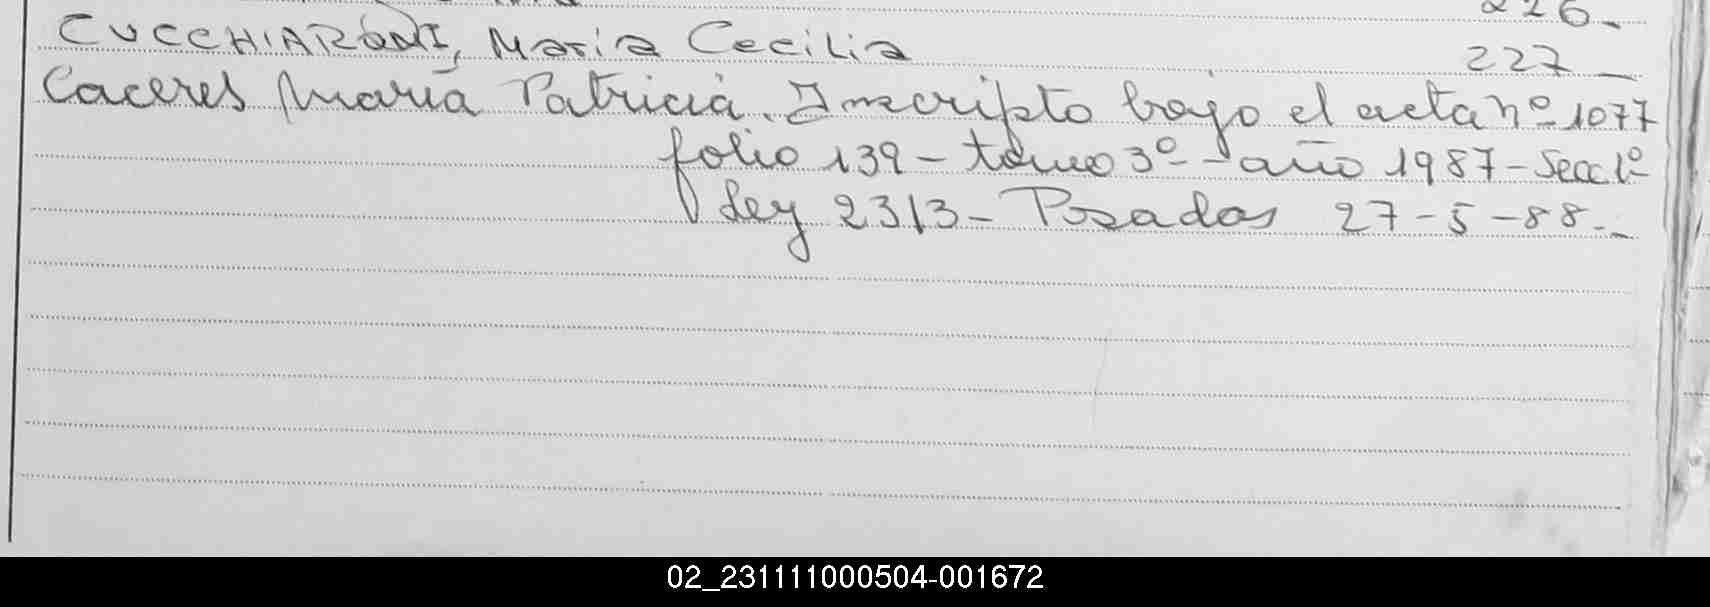 226-
CUCCHIARONI, Maria Cecilia 227-
Caceres María Patricia. Inscripto bajo el acta nº 1077
folio 139 - tomo 3º - año 1987 - Secc 1º
Ley 2313 - Posadas 27-5-88.-
02_231111000504-001672